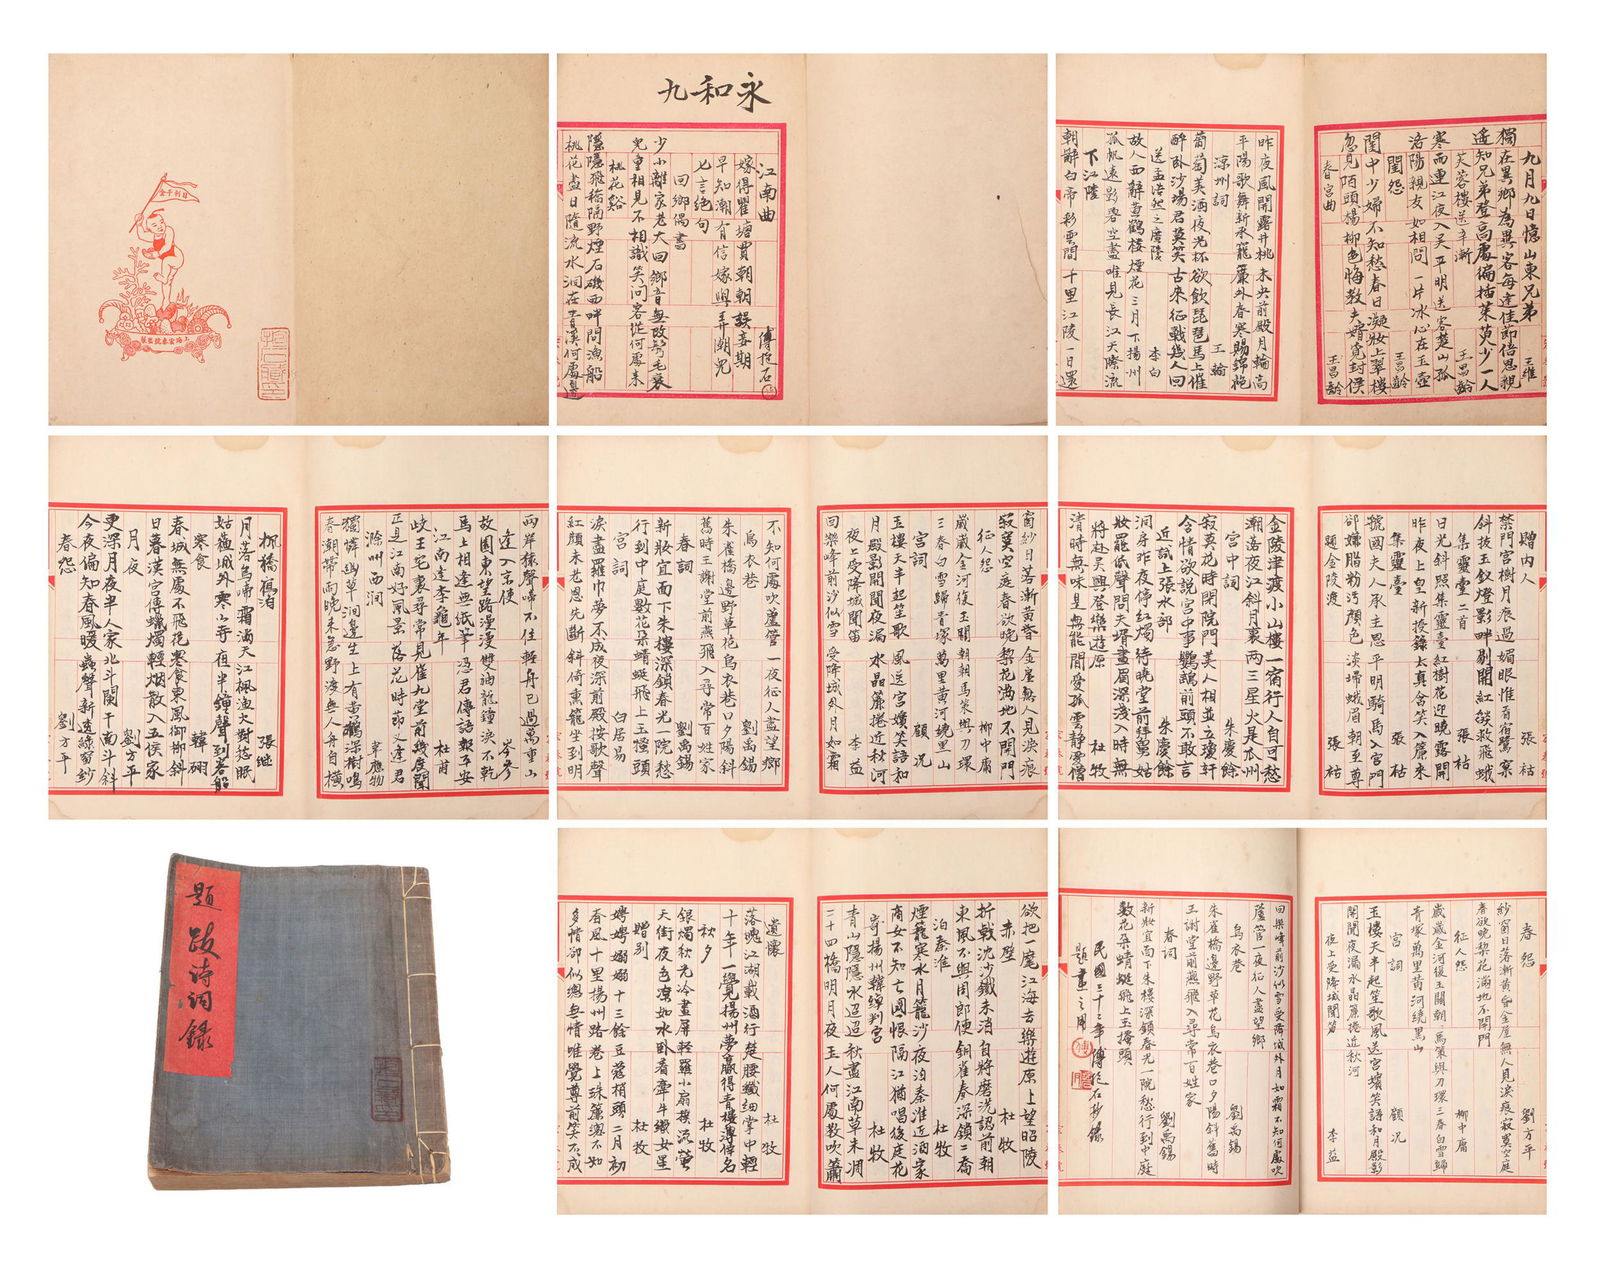 日利千金
永和九
江南曲 傅抱石
嫁得瞿塘賈朝朝誤妾期
早知潮有信嫁與弄潮兒
七言絕句
回鄉偶書
少小離家老大回鄉音無改鬢毛衰
兒童相見不相識笑問客從何處來
桃花谿
隱隱飛橋隔野煙石磯西畔問漁船
桃花盡日隨流水洞在青溪何處邊
九月九日憶山東兄弟 王維
獨在異鄉為異客每逢佳節倍思親
遙知兄弟登高處徧插茱萸少一人
芙蓉樓送辛漸 王昌齡
寒雨連江夜入吳平明送客楚山孤
洛陽親友如相問一片冰心在玉壺
閨怨 王昌齡
閨中少婦不知愁春日凝妝上翠樓
忽見陌頭楊柳色悔教夫婿覓封侯
春宮曲 王昌齡
昨夜風開露井桃未央前殿月輪高
平陽歌舞新承寵簾外春寒賜錦袍
涼州詞 王翰
葡萄美酒夜光杯欲飲琵琶馬上催
醉臥沙場君莫笑古來征戰幾人回
送孟浩然之廣陵 李白
故人西辭黃鶴樓煙花三月下揚州
孤帆遠影碧空盡唯見長江天際流
下江陵
朝辭白帝彩雲間千里江陵一日還
兩岸猿聲啼不住輕舟已過萬重山
逢入京使 岑參
故園東望路漫漫雙袖龍鍾淚不乾
馬上相逢無紙筆憑君傳語報平安
江南逢李龜年 杜甫
岐王宅裏尋常見崔九堂前幾度聞
正是江南好風景落花時節又逢君
滁州西澗 韋應物
獨憐幽草澗邊生上有黃鸝深樹鳴
春潮帶雨晚來急野渡無人舟自橫
楓橋夜泊 張繼
月落烏啼霜滿天江楓漁火對愁眠
姑蘇城外寒山寺夜半鐘聲到客船
寒食 韓翃
春城無處不飛花寒食東風御柳斜
日暮漢宮傳蠟燭輕烟散入五侯家
月夜 劉方平
更深月夜半人家北斗闌干南斗斜
今夜偏知春風暖蟲聲新透綠窗紗
春怨 劉方平
窗紗日落漸黃昏金屋無人見淚痕
寂寞空庭春欲晚梨花滿地不開門
征人怨 柳中庸
歲歲金河復玉關朝朝馬策與刀環
三春白雪歸青塚萬里黃河繞黑山
宮詞 顧況
玉樓天半起笙歌風送宮嬪笑語和
月殿影開聞夜漏水晶簾捲近秋河
夜上受降城聞笛 李益
回樂峰前沙似雪受降城外月如霜
不知何處吹蘆管一夜征人盡望鄉
烏衣巷 劉禹錫
朱雀橋邊野草花烏衣巷口夕陽斜
舊時王謝堂前燕飛入尋常百姓家
春詞 劉禹錫
新妝宜面下朱樓深鎖春光一院愁
行到中庭數花朵蜻蜓飛上玉搔頭
宮詞 白居易
淚盡羅巾夢不成夜深前殿按歌聲
紅顏未老恩先斷斜倚熏籠坐到明
贈內人 張祜
禁門宮樹月痕過媚眼惟看宿鷺窠
斜拔玉釵燈影畔剔開紅燄救飛蛾
集靈臺二首 張祜
日光斜照集靈臺紅樹花迎曉露開
昨夜上皇新授籙太真含笑入簾來
集靈臺 張祜
虢國夫人承主恩平明騎馬入宮門
卻嫌脂粉污顏色淡掃蛾眉朝至尊
題金陵渡 張祜
金陵津渡小山樓一宿行人自可愁
潮落夜江斜月裏兩三星火是瓜州
宮中詞 朱慶餘
寂寞花時閉院門美人相並立瓊軒
含情欲說宮中事鸚鵡前頭不敢言
近試上張水部 朱慶餘
洞房昨夜停紅燭待曉堂前拜舅姑
妝罷低聲問夫壻畫眉深淺入時無
將赴吳興登樂遊原 杜牧
清時有味是無能閒愛孤雲靜愛僧
題跋诗詞錄
欲把一麾江海去樂遊原上望昭陵
赤壁 杜牧
折戟沈沙鐵未消自將磨洗認前朝
東風不與周郎便銅雀春深鎖二喬
泊秦淮 杜牧
煙籠寒水月籠沙夜泊秦淮近酒家
商女不知亡國恨隔江猶唱後庭花
寄揚州韓綽判官 杜牧
青山隱隱水迢迢秋盡江南草未凋
二十四橋明月夜玉人何處教吹簫
遣懷 杜牧
落魄江湖載酒行楚腰纖細掌中輕
十年一覺揚州夢贏得青樓薄倖名
秋夕 杜牧
銀燭秋光冷畫屏輕羅小扇撲流螢
天街夜色涼如水臥看牽牛織女星
贈別 杜牧
娉娉嫋嫋十三餘豆蔻梢頭二月初
春風十里揚州路卷上珠簾總不如
多情卻似總無情唯覺尊前笑不成
春怨 劉方平
紗窗日落漸黃昏金屋無人見淚痕寂寞空庭
春欲晚梨花滿地不開門
征人怨 柳中庸
歲歲金河復玉關朝朝馬策與刀環三春白雪歸
青塚萬里黃河繞黑山
宮詞 顧況
玉樓天半起笙歌風送宮嬪笑語和月殿影
開聞夜漏水晶簾捲近秋河
夜上受降城聞笛 李益
回樂峰前沙似雪受降城外月如霜不知何處吹
蘆管一夜征人盡望鄉
烏衣巷 劉禹錫
朱雀橋邊野草花烏衣巷口夕陽斜舊時
王謝堂前燕飛入尋常百姓家
春詞 劉禹錫
新妝宜面下朱樓深鎖春光一院愁行到中庭
數花朵蜻蜓飛上玉搔頭
民國三十三年傅抱石抄錄
題畫之用